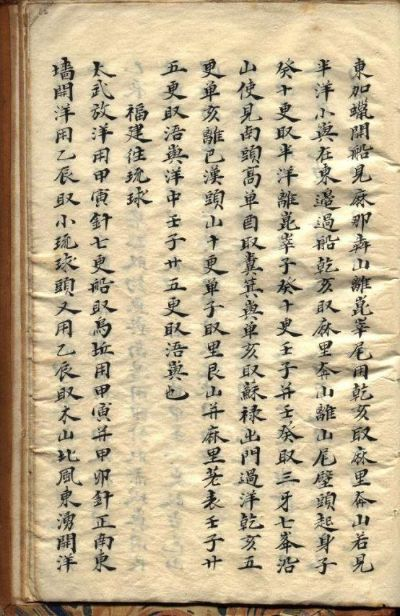 東加蠟開船見麻那壽山離崑崒尾用乾亥取麻里奔山若見
半洋小嶼在東邊過船乾亥取麻里奔山離山尾壁頭起身子
癸十更取半洋離崑崒子癸十更壬子并壬癸取三牙七峯沿
山使見南頭高單酉取糞箕嶼單亥取蘇祿出門過洋乾亥五
更單亥離巳漢頭山十更單子取里艮山并麻里荖表壬子廿
五更取浯嶼洋中壬子廿五更取浯嶼也
福建往琉球
太武放洋用甲寅針七更船取烏坵用甲寅并甲卯針正南東
墻開洋用乙辰取小琉球頭又用乙辰取木山北風東湧開洋